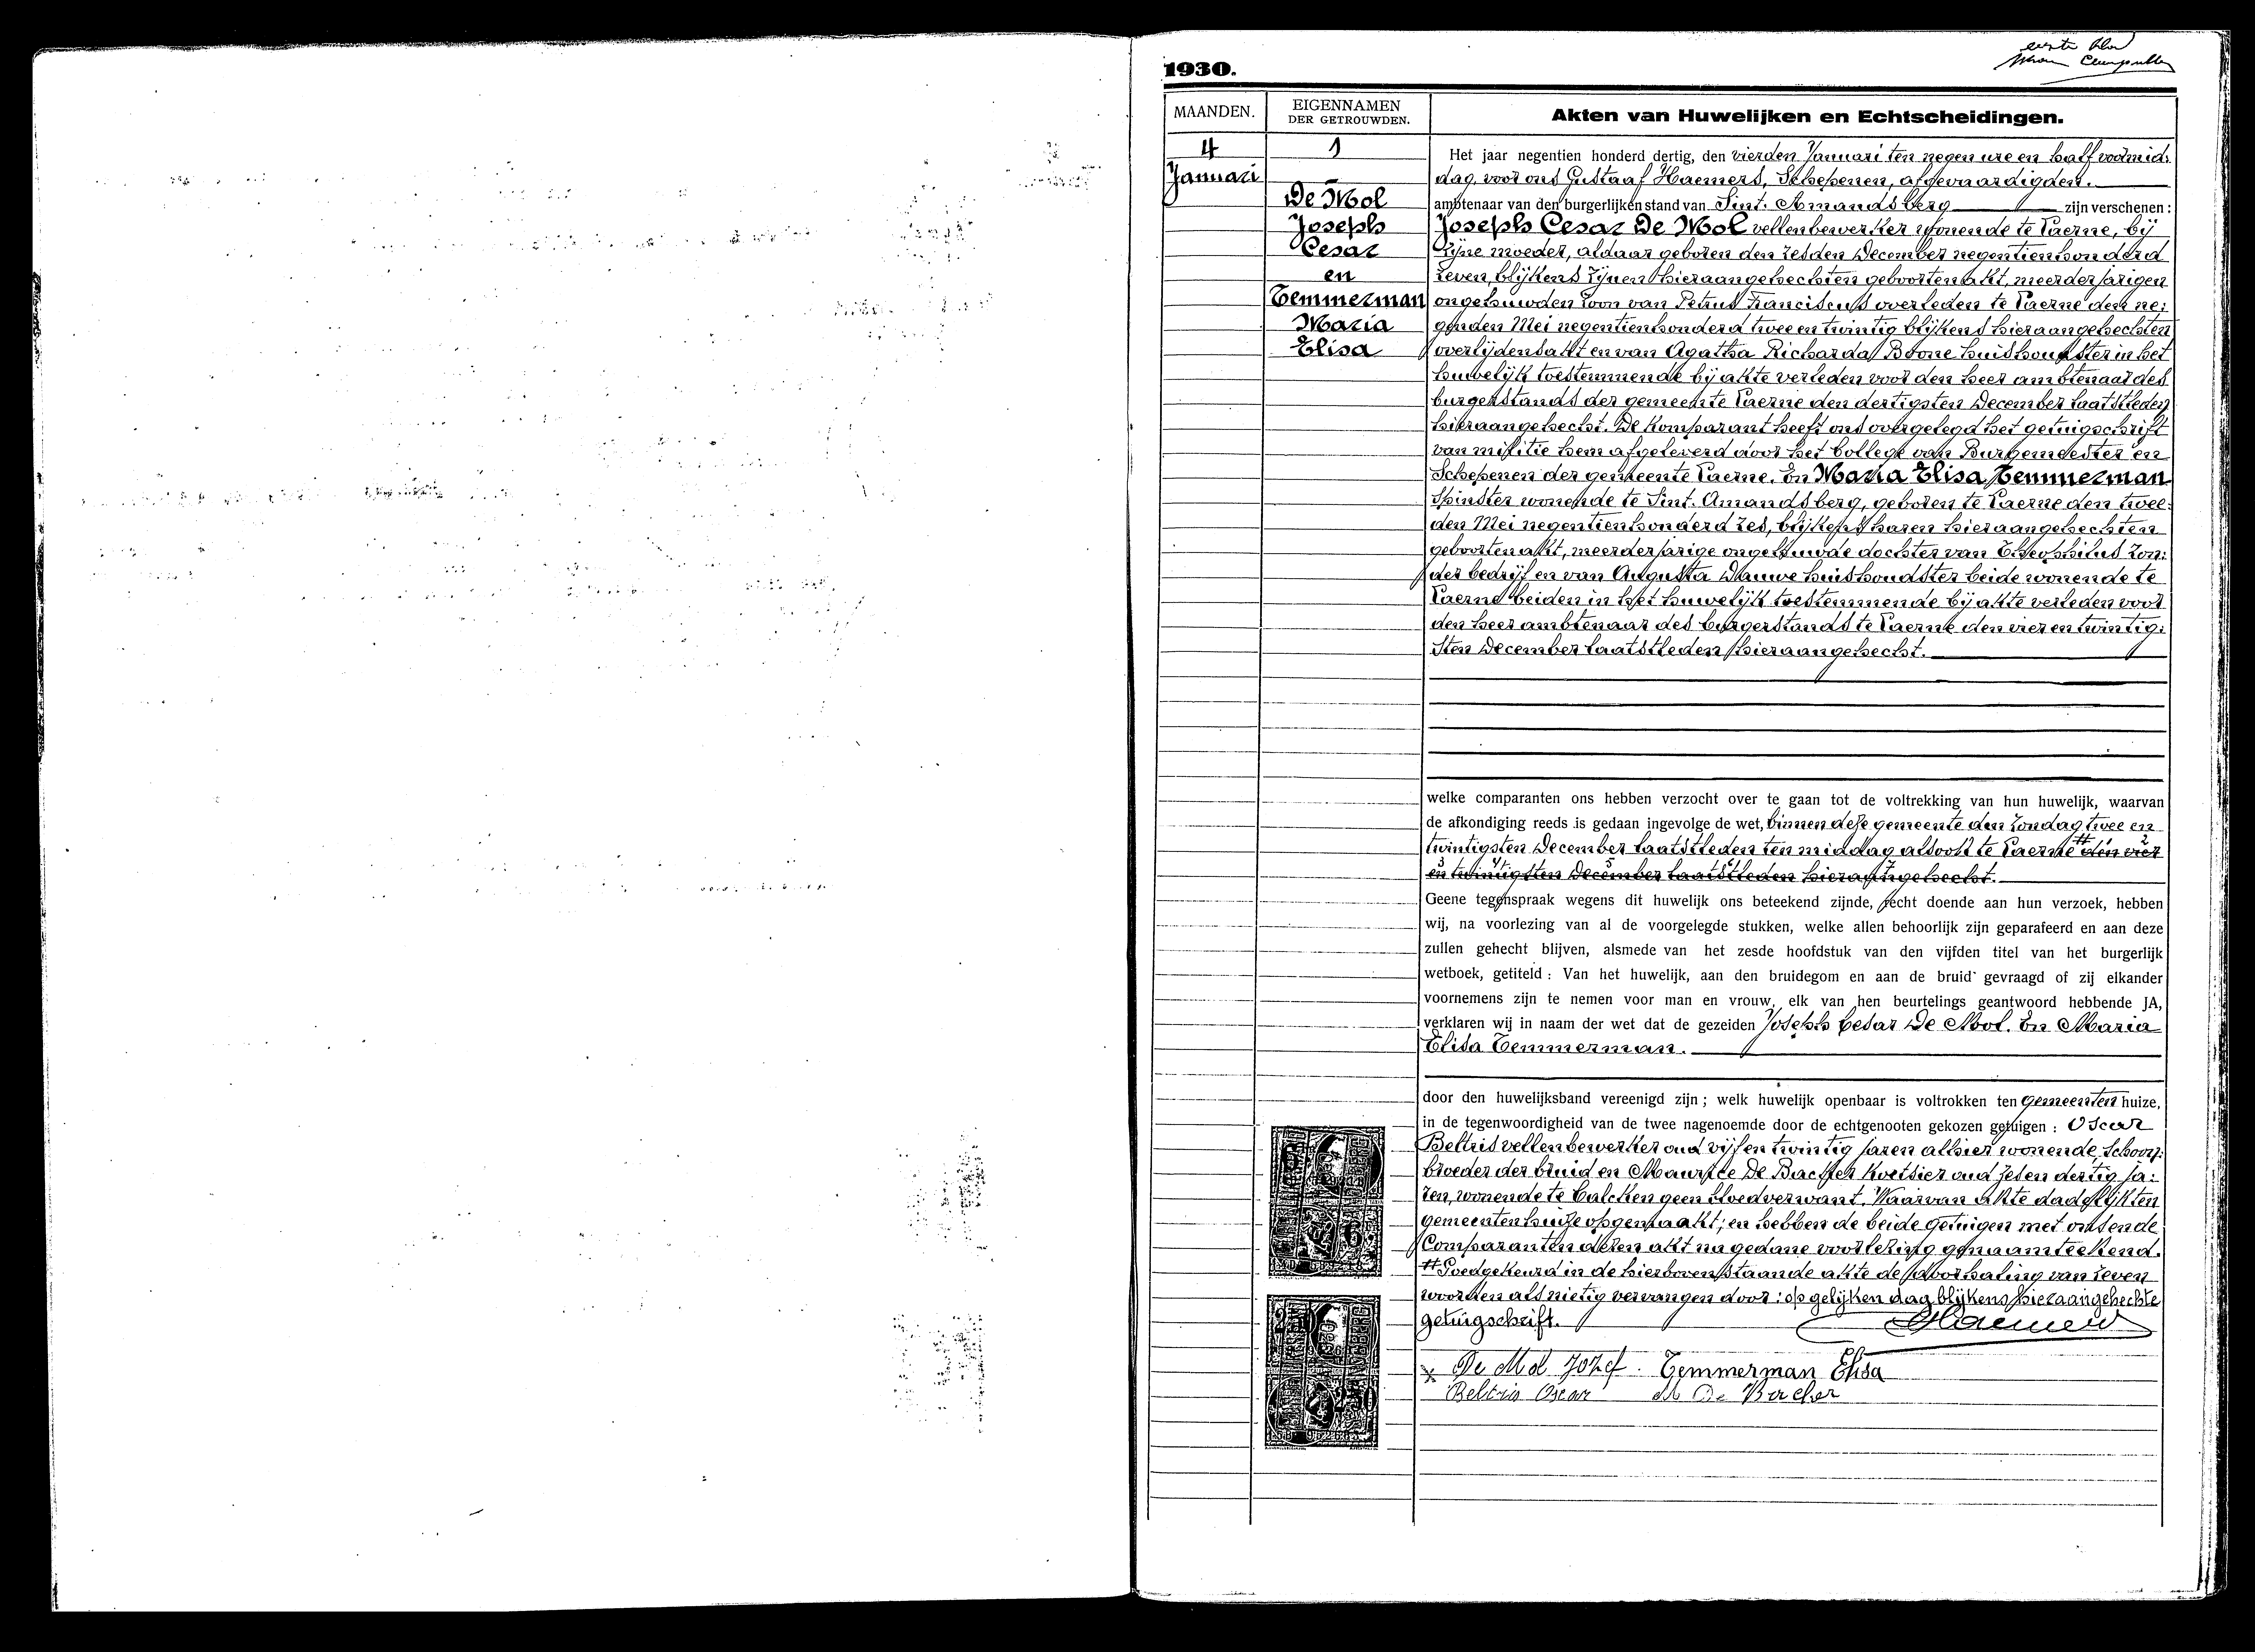 eerste blad
1930.
MAANDEN.
EIGENNAMEN
DER GETROUWDEN.
Akten van Huwelijken en Echtscheidingen.
4
Januari
1
De Mol
Joseph
Cesar
en
Temmerman
Maria
Elisa
Het jaar negentien honderd dertig, den vierden Januari ten negen ure en half voormid:
dag, voor ons Gustaaf Haemers, Schepenen, afgevaardigden.
ambtenaar van den burgerlijken stand van Sint-Amandsberg zijn verschenen :
Joseph Cesar De Mol vellenbewerker wonende te Laerne, bij
zijne moeder, aldaar geboren den zesden December negentienhonderd
zeven, blijkens zijnen hieraangehechten geboortenakt, meerderjarigen
ongehuwden zoon van Petrus Franciscus overleden te Laerne den ne:
genden Mei negentienhonderd twee en twintig blijkens hieraangehechten
overlijdensakt en van Agatha Richarda Boone huishoudster in het
huwelijk toestemmende bij akte verleden voor den heer ambtenaar des
burgerstands der gemeente Laerne den dertigsten December laatstleden
hieraangehecht. De komparant heeft ons overgelegd het getuigschrift
van militie hem afgeleverd door het College van Burgemeester en
Schepenen der gemeente Laerne. En Maria Elisa Temmerman
Spinster wonende te Sint-Amandsberg, geboren te Laerne den twee:
den Mei negentienhonderd zes, blijkens haren hieraangehechten
geboortenakt, meerderjarige ongehuwde dochter van Theophilus zon:
der bedrijf en van Augusta Dauwe huishoudster beide wonende te
Laerne beiden in het huwelijk toestemmende bij akte verleden voor
den heer ambtenaar des burgerstands te Laerne den vier en twintig:
sten December laatstleden hieraangehecht.
welke comparanten ons hebben verzocht over te gaan tot de voltrekking van hun huwelijk, waarvan
de afkondiging reeds is gedaan ingevolge de wet, binnen deze gemeente den zondag twee en
twintigsten December laatstleden ten middag alsook te Laerne den vier
en twintigsten December laatstleden hieraangehecht.
Geene tegenspraak wegens dit huwelijk ons beteekend zijnde, recht doende aan hun verzoek, hebben
wij, na voorlezing van al de voorgelegde stukken, welke allen behoorlijk zijn geparafeerd en aan deze
zullen gehecht blijven, alsmede van het zesde hoofdstuk van den vijfden titel van het burgerlijk
wetboek, getiteld : Van het huwelijk, aan den bruidegom en aan de bruid gevraagd of zij elkander
voornemens zijn te nemen voor man en vrouw, elk van hen beurtelings geantwoord hebbende JA,
verklaren wij in naam der wet dat de gezeiden Joseph Cesar De Mol. En Maria
Elisa Temmerman.
door den huwelijksband vereenigd zijn ; welk huwelijk openbaar is voltrokken ten gemeenten huize,
in de tegenwoordigheid van de twee nagenoemde door de echtgenooten gekozen getuigen : Oscar
Beltris vellenbewerker oud vijf en twintig jaren alhier wonende, Schoon:
broeder der bruid en Maurice De Backer koetsier oud zes en dertig ja:
ren, wonende te Calcken geen bloedverwant. Waarvan akte dadelijk ten
gemeenten huize opgemaakt; en hebben de beide getuigen met ons en de
Comparanten dezen akt na gedane voorlezing genaamteekend.
# Goedgekeurd in de hierbovenstaande akte de doorhaling van zeven
woorden als nietig vervangen door: op gelijken dag blijkens hieraangehechte
getuigschrift.
Haemers
De Mol Jozef Temmerman Elisa
Beltris Oscar M De Backer